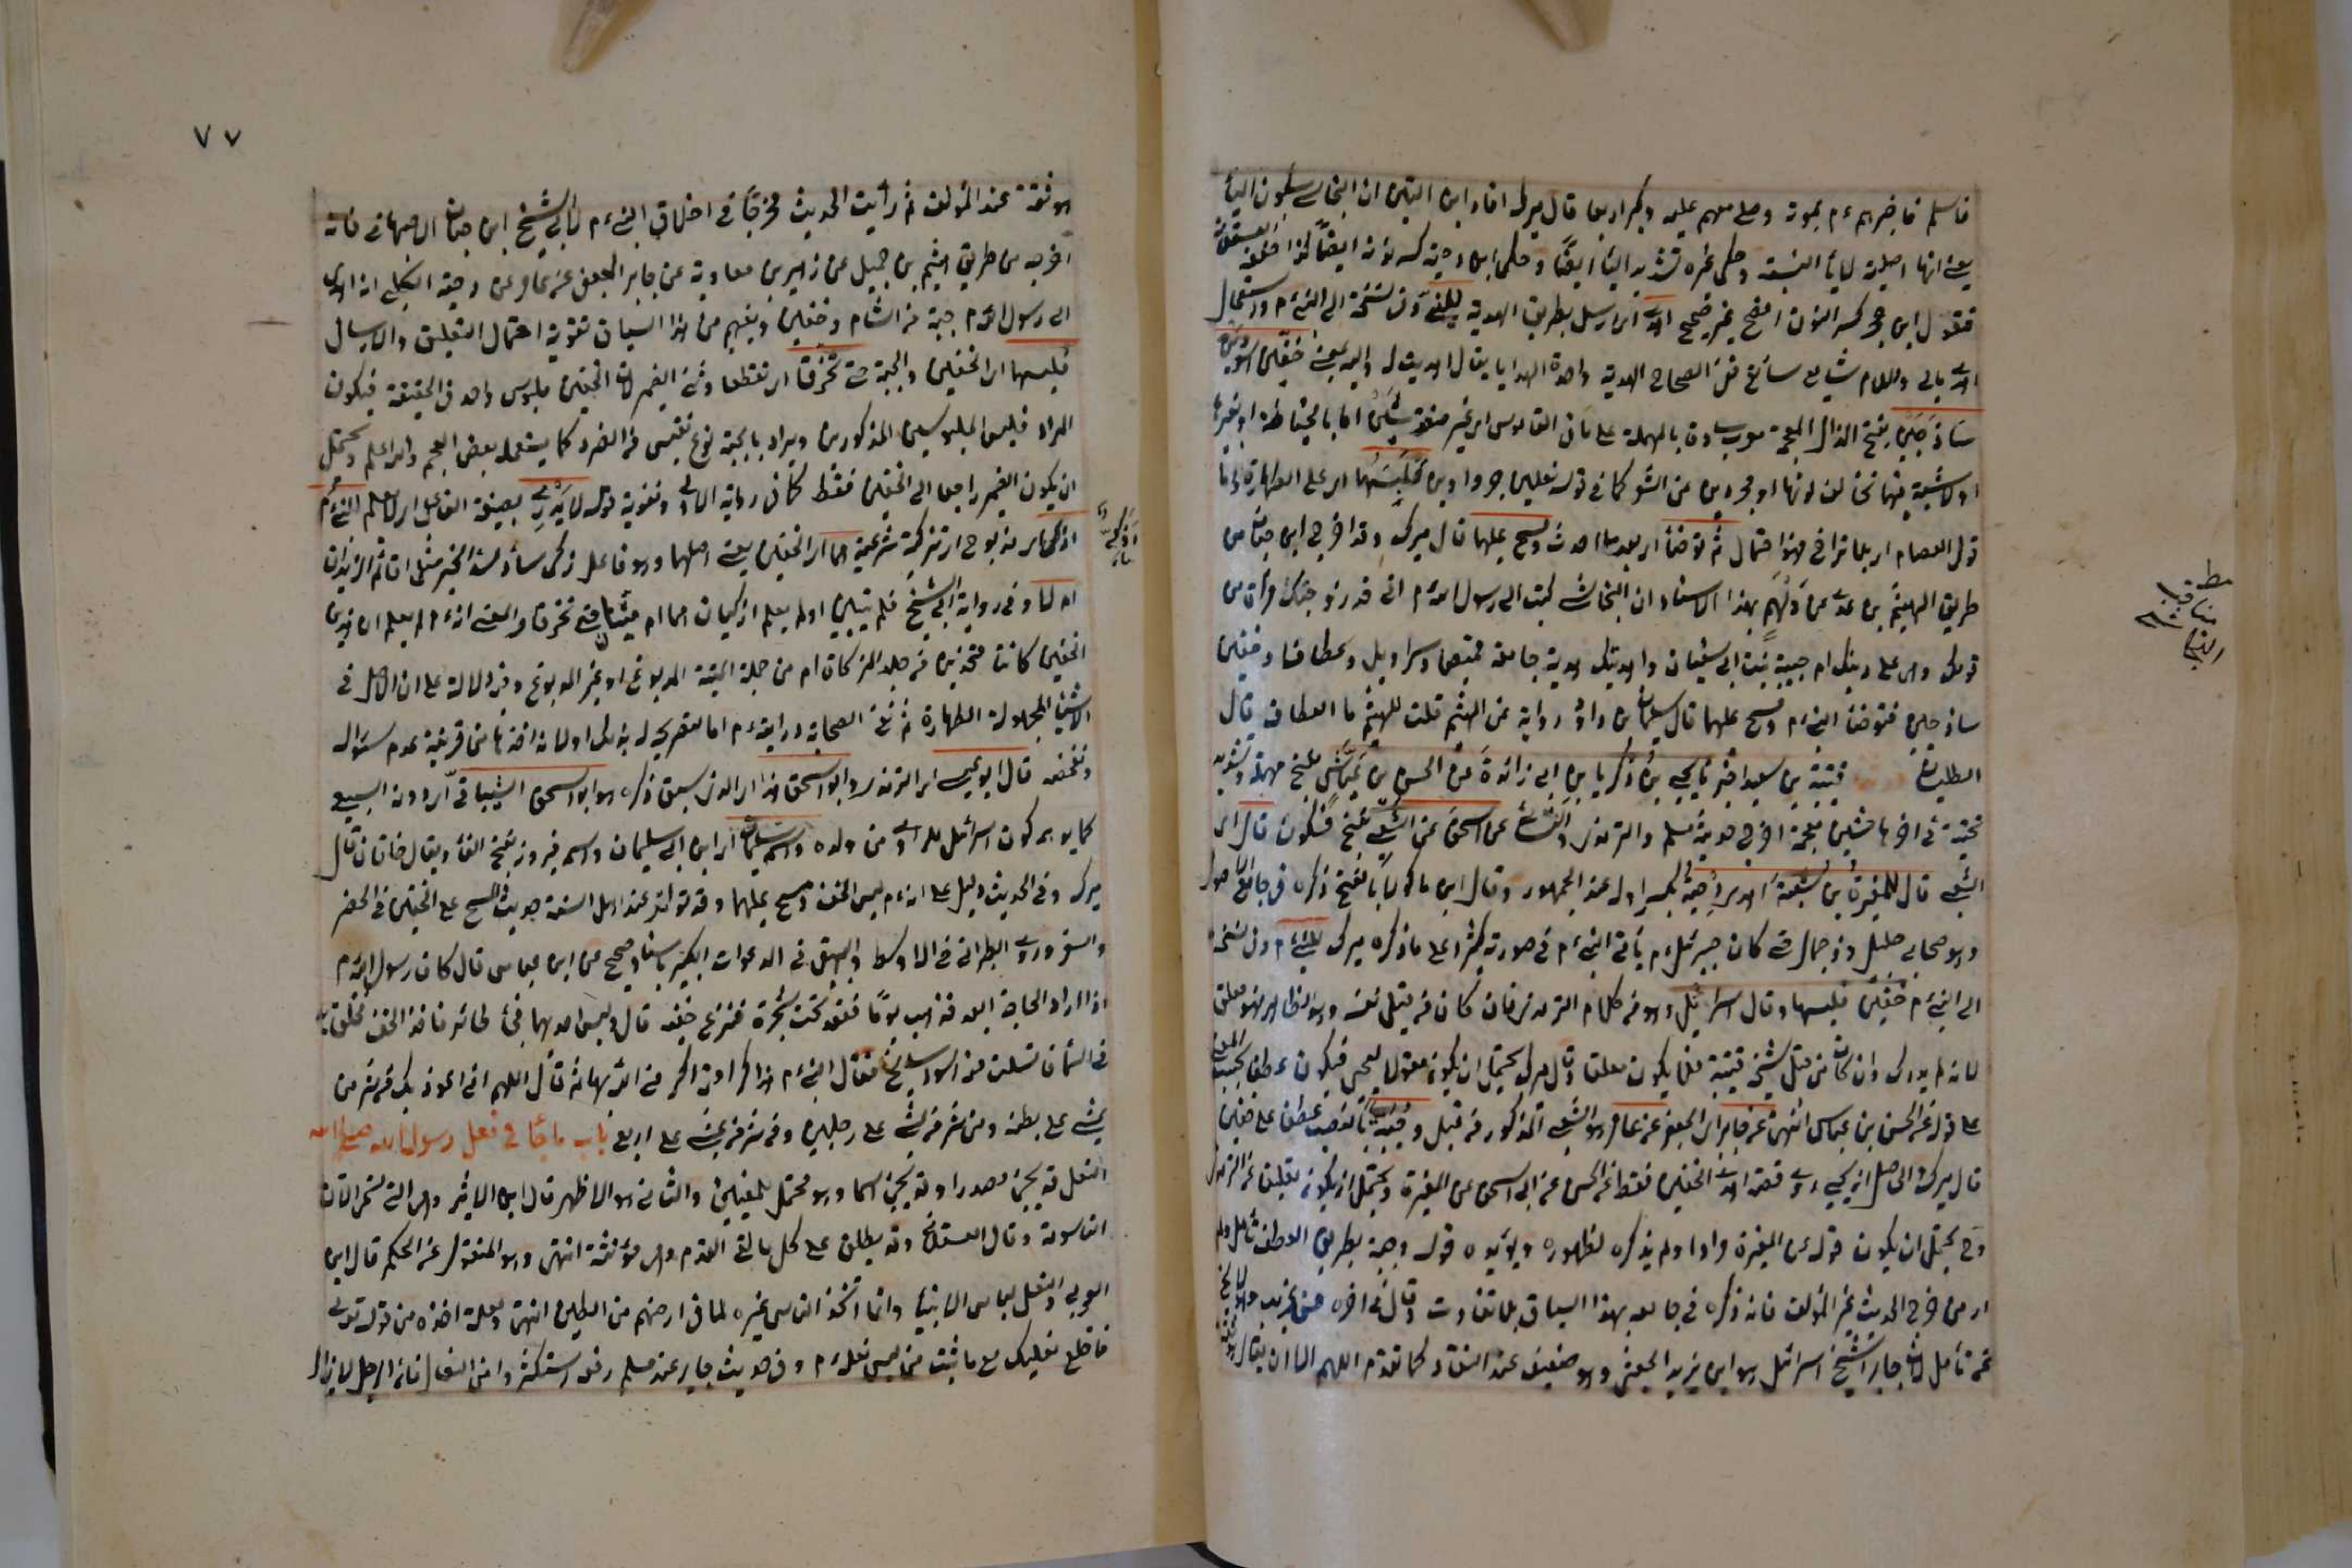 فاسلم فاخبرهم ءم بموته وصلى معهم عليه وكبر اربعا قال ميرك افاد ابن التين ان النجاشي بسكون الياء
يعني انها اصلية لا ياء النسبة وحكى غيره تشديد الياء ايضا وحكى ابن دحية كسر نونه ايضا كذا حققه العسقلاني
فقول ابن حجر كسر النون افصح غير صحيح اهدى اي ارسل بطريق الهدية للنبي وفي نسخة الى النبي ءم واستعمال
اهدى بالى واللام شايع سائغ ففي الصحاح الهدية واحدة الهدايا يقال اهديت له واليه بمعنى خفين اسودين
ساذجين بفتح الذال المعجمة معرب ساده بالمهملة على ما في القاموس اي غير منقوشين اما بالخياطة او بغيرها
او لا شية فيهما تخالف لونهما او مجردين عن الشعر كما في قوله نعلين جرداوين فلبسهما اي على الطهارة واما
قول العصام اي بلا تراخ فهو احتمال ثم توضأ اي بعد ما احدث ومسح عليهما قال ميرك وقد اخرج ابن حبان من
طريق الهيثم بن عدي عن دلهم بهذا الاسناد ان النجاشي كتب الى رسول الله ءم اني قد زوجتك امرأة من
قومك وهي على دينك ام حبيبة بنت ابي سفيان واهديتك هدية جامعة قميصا وسراويل وعطافا وخفين
ساذجين فتوضأ النبي ءم ومسح عليهما قال سليمان بن داود رواية عن الهيثم قلت للهيثم ما العطاف قال
الطيلسان قتيبة بن سعيد اخبرنا يحيى بن زكريا بن ابي زائدة عن الحسن بن عياش بفتح مهملة وتشديد
تحتية في اخرها شين معجمة اخرج حديثه مسلم والترمذي والنسائي عن ابي اسحق عن الشعبي بفتح فسكون قال اي
الشعبي قال المغيرة بن شعبة اهدى دحية بكسر اوله عند الجمهور وقال ابن ماكولا بالفتح ذكره في جامع الاصول
وهو صحابي جليل ذو جمال حتى كان جبرئيل ءم يأتي النبي ءم في صورته كثيرا على ما ذكره ميرك للنبي ءم وفي نسخة
الى النبي ءم خفين فلبسهما وقال اسرائيل وهو من كلام الترمذي فان كان من قبل نفسه وهو الظاهر فهو معلق
لانه لم يدركه وان كان من قبل شيخه قتيبة فلا يكون معلقا وقال ميرك يحتمل ان يكون مقولا ليحيى فيكون عطفا بحسب المعنى
على قوله عن الحسن بن عياش انتهى عن جابر اي الجعفي عن عامر وهو الشعبي المذكور من قبل وجبة بالنصب عطف على خفين
قال ميرك والحاصل ان يحيى روى قصة اهداء الخفين فقط عن الحسن عن ابي اسحق عن المغيرة ويحتمل ان يكون تعليقا عن الترمذي
وح يحتمل ان يكون قوله عن المغيرة مرادا ولم يذكره لظهوره ويؤيده قوله وجبة بطريق العطف تأمل ولم
ار من اخرج الحديث غير المؤلف فانه ذكره في جامعه بهذا السياق بلا تفاوت وقال في اخره حسن غريب
فيه تأمل لان جابرا شيخ اسرائيل هو ابن يزيد الجعفي وهو ضعيف عند النقاد كما تقدم اللهم الا ان يقال
مطلب
مناقب
النجاشي
٧٧
هو ثقة عند المؤلف ثم رأيت الحديث مخرجا في اخلاق النبي ءم لابي الشيخ ابن حبان الاصبهاني فانه
اخرجه من طريق هيثم بن جميل عن زهير بن معاوية عن جابر الجعفي عن عامر عن دحية الكلبي انه اهدى
الى رسول الله ءم جبة من الشام وخفين ويفهم من هذا السياق تقوية احتمال التعليق والارسال
فلبسهما اي الخفين والجبة حتى تخرقا اي تقطعا وثنى الضمير لان الخفين ملبوس واحد في الحقيقة فيكون
المراد فلبس الملبوسين المذكورين ويراد بالجبة نوع نفيس من الفرو كما يستعمله بعض العجم والله اعلم ويحتمل
ان يكون الضمير راجعا الى الخفين فقط كما في رواية الاولى وتقويه قوله لا يدري بصيغة الفاعل اي لا يعلم النبي ءم
اذكي اي مذبوح اي تذكية شرعية هما اي الخفين يعني اصلهما وهو فاعل ذكي ساد مسد الخبر مثل اقائم الزيدان
ام لا وفي رواية ابي الشيخ فلم يتبين اولم يعلم اذكيان هما ام ميتان حتى تخرقا والمعنى انه ءم لم يعلم ان هذين
الخفين كانتا متخذتين من جلد المذكاة ام من جلد الميتة المدبوغ او غير المدبوغ وفيه دلالة على ان الاصل في
الاشياء المجهولة الطهارة ثم نفي الصحابة درايته ءم اما لتصريحه له بذلك او لانه اخذها من قرينة عدم سؤاله
وتفحصه قال ابو عيسى اي الترمذي وابو اسحق هذا اي الذي سبق ذكره هو ابو اسحق الشيباني اي دون السبيعي
كما يوهم كون اسرائيل الراوي من ولده واسمه سليمان اي ابن ابي سليمان واسمه فيروز بفتح الفاء ويقال خاقان قال
ميرك وفي الحديث دليل على انه ءم لبس الخف ومسح عليهما وقد تواتر عند اهل السنة حديث المسح على الخفين في الحضر
والسفر وروى الطبراني في الاوسط والبيهقي في الدعوات الكبير باسناد صحيح عن ابن عباس قال كان رسول الله ءم
اذا اراد الحاجة ابعد فذهب يوما فقعد تحت شجرة فنزع خفيه قال ولبس احدهما فجاء طائر فاخذ الخف فحلق به
في السماء فانسلت منه اسود سالخ فقال النبي ءم هذا كرامة اكرمني الله بها ثم قال اللهم اني اعوذ بك من شر من
يمشي على بطنه ومن شر من يمشي على رجليه ومن شر من يمشي على اربع باب ما جاء في نعل رسول الله صلى الله
النعل قد يجيء مصدرا وقد يجيء اسما وهو محتمل للمعنيين والثاني هو الاظهر قال ابن الاثير وهي التي تسمى الان
التاسومة وقال العسقلاني وقد يطلق على كل ما يقي القدم وهي مؤنثة انتهى وهو المنقول عن المحكم قال ابن
العربي والنعل لباس الانبياء وانما اتخذ الناس غيره لما في ارضهم من الطين انتهى ولعله اخذه من قوله تعالى
فاخلع نعليك مع ما ثبت من لبس نعله ءم وفي حديث جابر عند مسلم رفعه استكثروا من النعال فان الرجل لا يزال